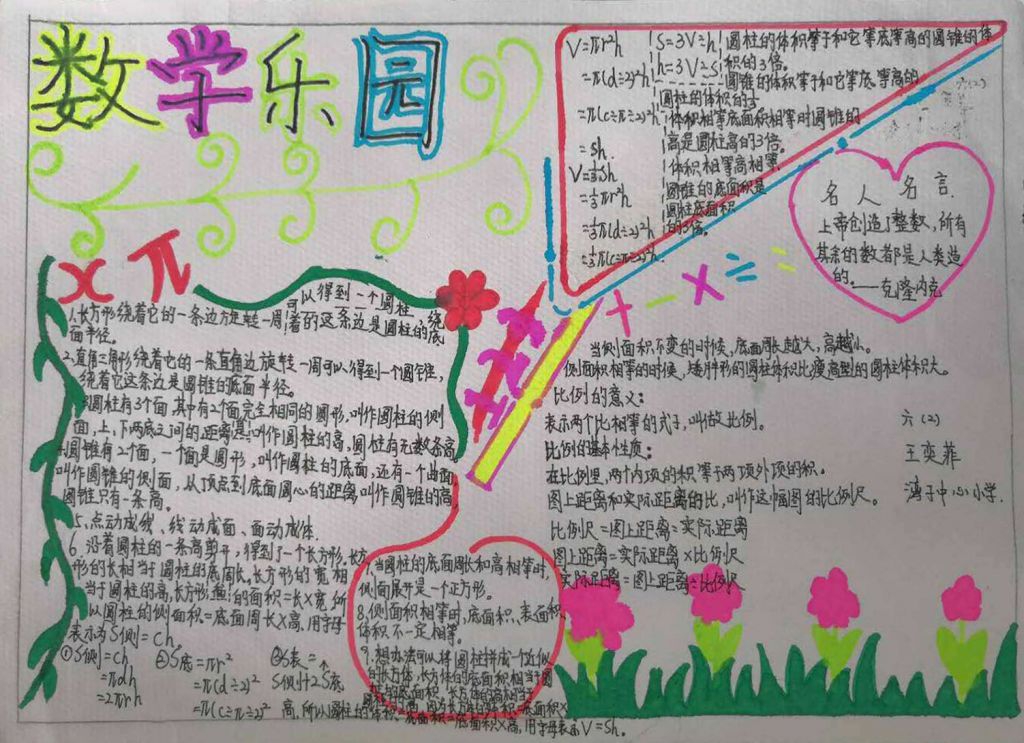 数学乐园
x π
1.长方形绕着它的一条边方旋转一周可以得到一个圆柱,绕
着的这条边是圆柱的底
面半径。
2.直角三角形绕着它的一条直角边旋转一周可以得到一个圆锥,
绕着它这条边是圆锥的底面半径。
圆柱有3个面,其中有2个面完全相同的圆形,叫作圆柱的侧
面,上、下两底之间的距离是叫作圆柱的高,圆柱有无数条高
圆锥有2个面,一个面是圆形,叫作圆柱的底面,还有一个曲面
叫作圆锥的侧面,从顶点到底面圆心的距离叫作圆锥的高,
圆锥只有一条高。
5、点动成线、线动成面、面动成体.
6、沿着圆柱的一条高剪开,得到了一个长方形.长方
形的长相当于圆柱的底周长,长方形的宽相
当于圆柱的高,长方形的面积=长X宽,所
以圆柱的侧面积=底面周长X高,用字母
表示为S侧=Ch,
①S侧=Ch
=πdh
=2πrh
②S底=πr²
=π(d÷2)²
=π(C÷π÷2)²
③S表=
S侧+2S底
7.当圆柱的底面周长和高相等时,
侧面展开是一个正方形。
8.侧面积相等时,底面积、表面积、
体积不一定相等。
9.想办法可以将圆柱拼成一个近似
的长方体,长方体的底面积相当于圆
柱的底面积,长方体的高相当于
高,所以圆柱的体积=底面积X高,用字母表示V=Sh。
V=πr²h
=π(d÷2)²h
=π(C÷π÷2)²h
=Sh
V=⅓Sh
=⅓πr²h
=⅓π(d÷2)²h
=⅓π(C÷π÷2)²h
S=3V÷h
h=3V÷S
圆柱的体积等于和它等底等高的圆锥的体
积的3倍。
圆锥的体积等于和它等底等高的
圆柱的体积的⅓
体积相等底面积相等时圆锥的
高是圆柱高的3倍。
体积相等高相等
圆锥的底面积是
圆柱底面积
的3倍。
六(2)
名人名言
上帝创造了整数,所有
其余的数都是人类造
的。——克隆内克
+ - × ÷ =
当侧面积不变的时候,底面周长越大,高越小。
侧面积相等的时候,矮胖形的圆柱体积比瘦高型的圆柱体积大。
比例的意义:
表示两个比相等的式子,叫做比例。
比例的基本性质:
在比例里,两个内项的积等于两项外项的积。
图上距离和实际距离的比,叫作这幅图的比例尺。
比例尺=图上距离÷实际距离
图上距离=实际距离×比例尺
实际距离=图上距离÷比例尺
六(2)
王奕菲
湾子中心小学.